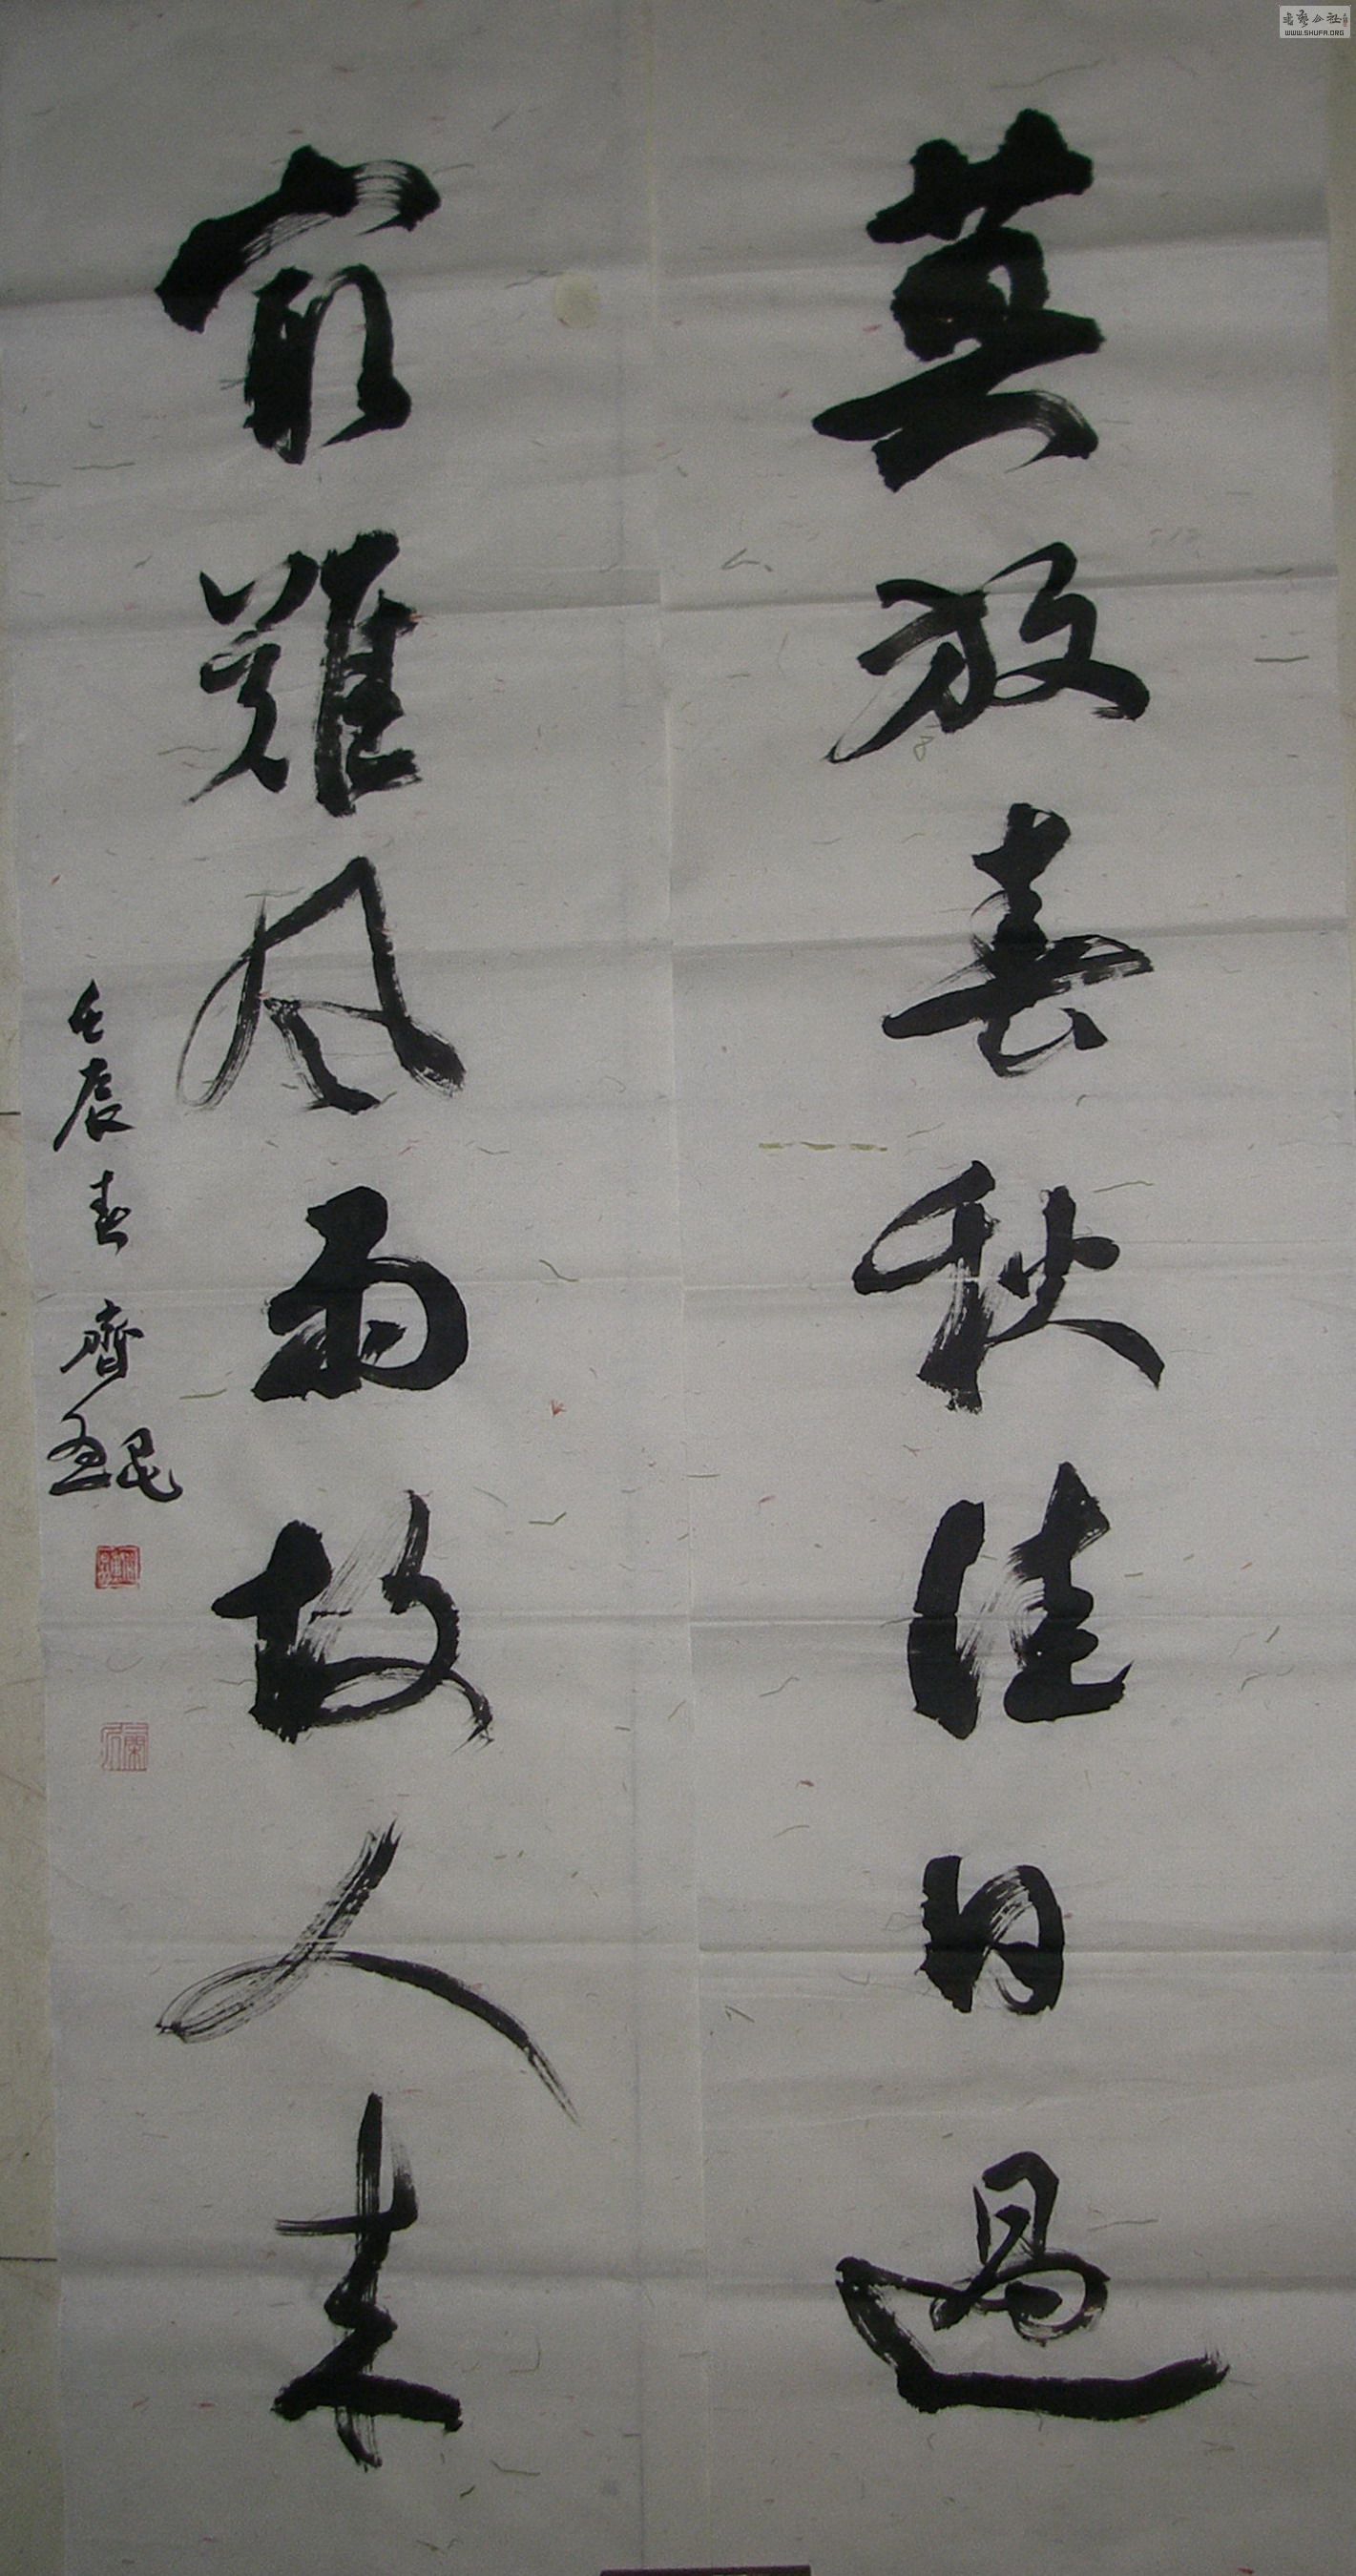 莫放春秋佳日過
最難風雨故人来
壬辰春 齊
書藝公社
WWW.SHUFA.ORG